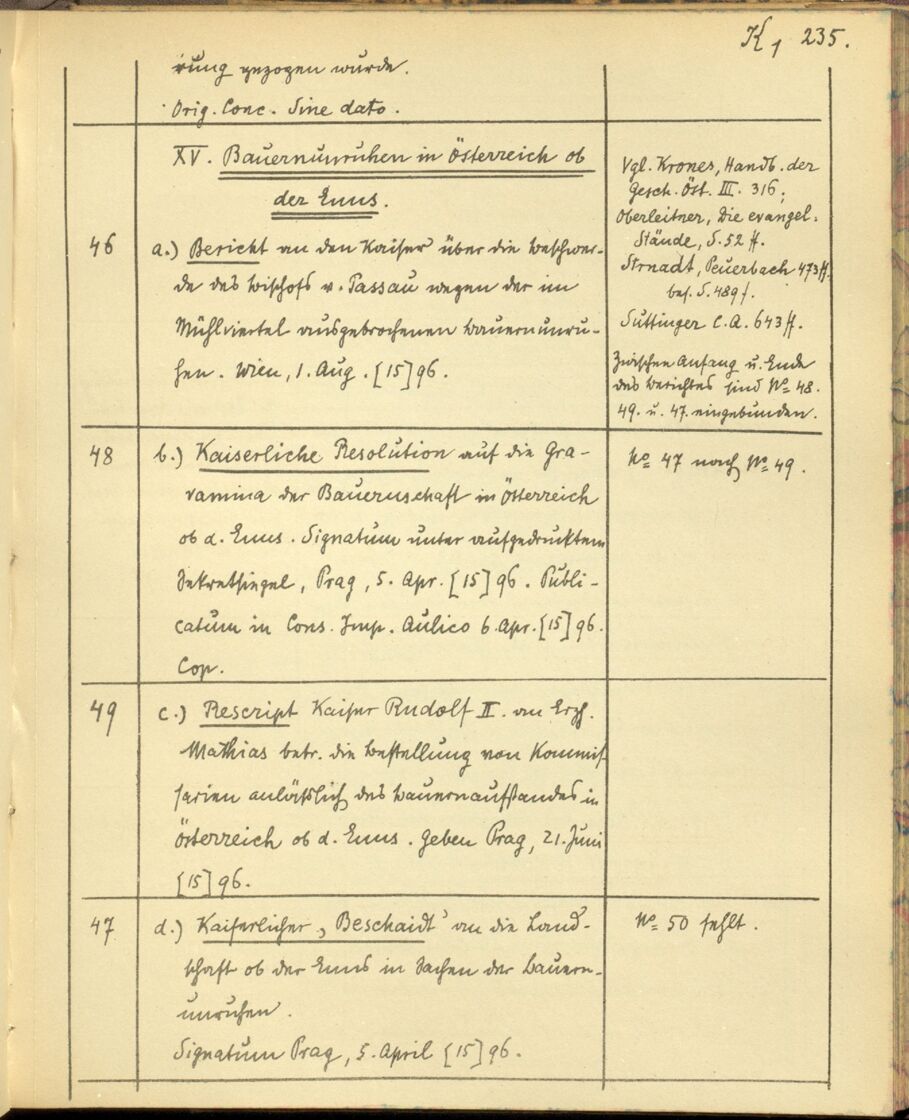 K1 235.
rung gezogen wurde.
Orig. Conc. Sine dato.
XV. Bauernunruhen in Österreich ob
der Enns.
46
a.) Bericht an den Kaiser über die Beschwer-
de des Bischofs v. Passau wegen der im
Mühlviertel ausgebrochenen Bauernunru-
hen. Wien, 1. Aug. [15]96.
Vgl. Krones, Handb. der
Gesch. Öst. III. 316;
Oberleitner, Die evangel.
Stände, S. 52 ff.
Strnadt, Peuerbach 473 ff.
bes. S. 489 f.
Suttinger C. A. 643 ff.
Zwischen Anfang u. Ende
des Berichtes sind No 48.
49. u. 47. eingebunden.
48
b.) Kaiserliche Resolution auf die Gra-
vamina der Bauernschaft in Österreich
ob d. Enns. Signatum unter aufgedrucktem
Sekretsiegel, Prag, 5. Apr. [15]96. Publi-
catum in Cons. Imp. Aulico 6 Apr. [15]96.
Cop.
No 47 nach No 49.
49
c.) Rescript Kaiser Rudolf II. an Erzh.
Mathias betr. die Bestellung von Kommis-
sarien anlässlich des Bauernaufstandes in
Österreich ob d. Enns. Geben Prag, 21. Juni
[15]96.
47
d.) Kaiserlicher „Beschaidt" an die Land-
schaft ob der Enns in Sachen der Bauern-
unruhen.
Signatum Prag, 5. April [15]96.
No 50 fehlt.